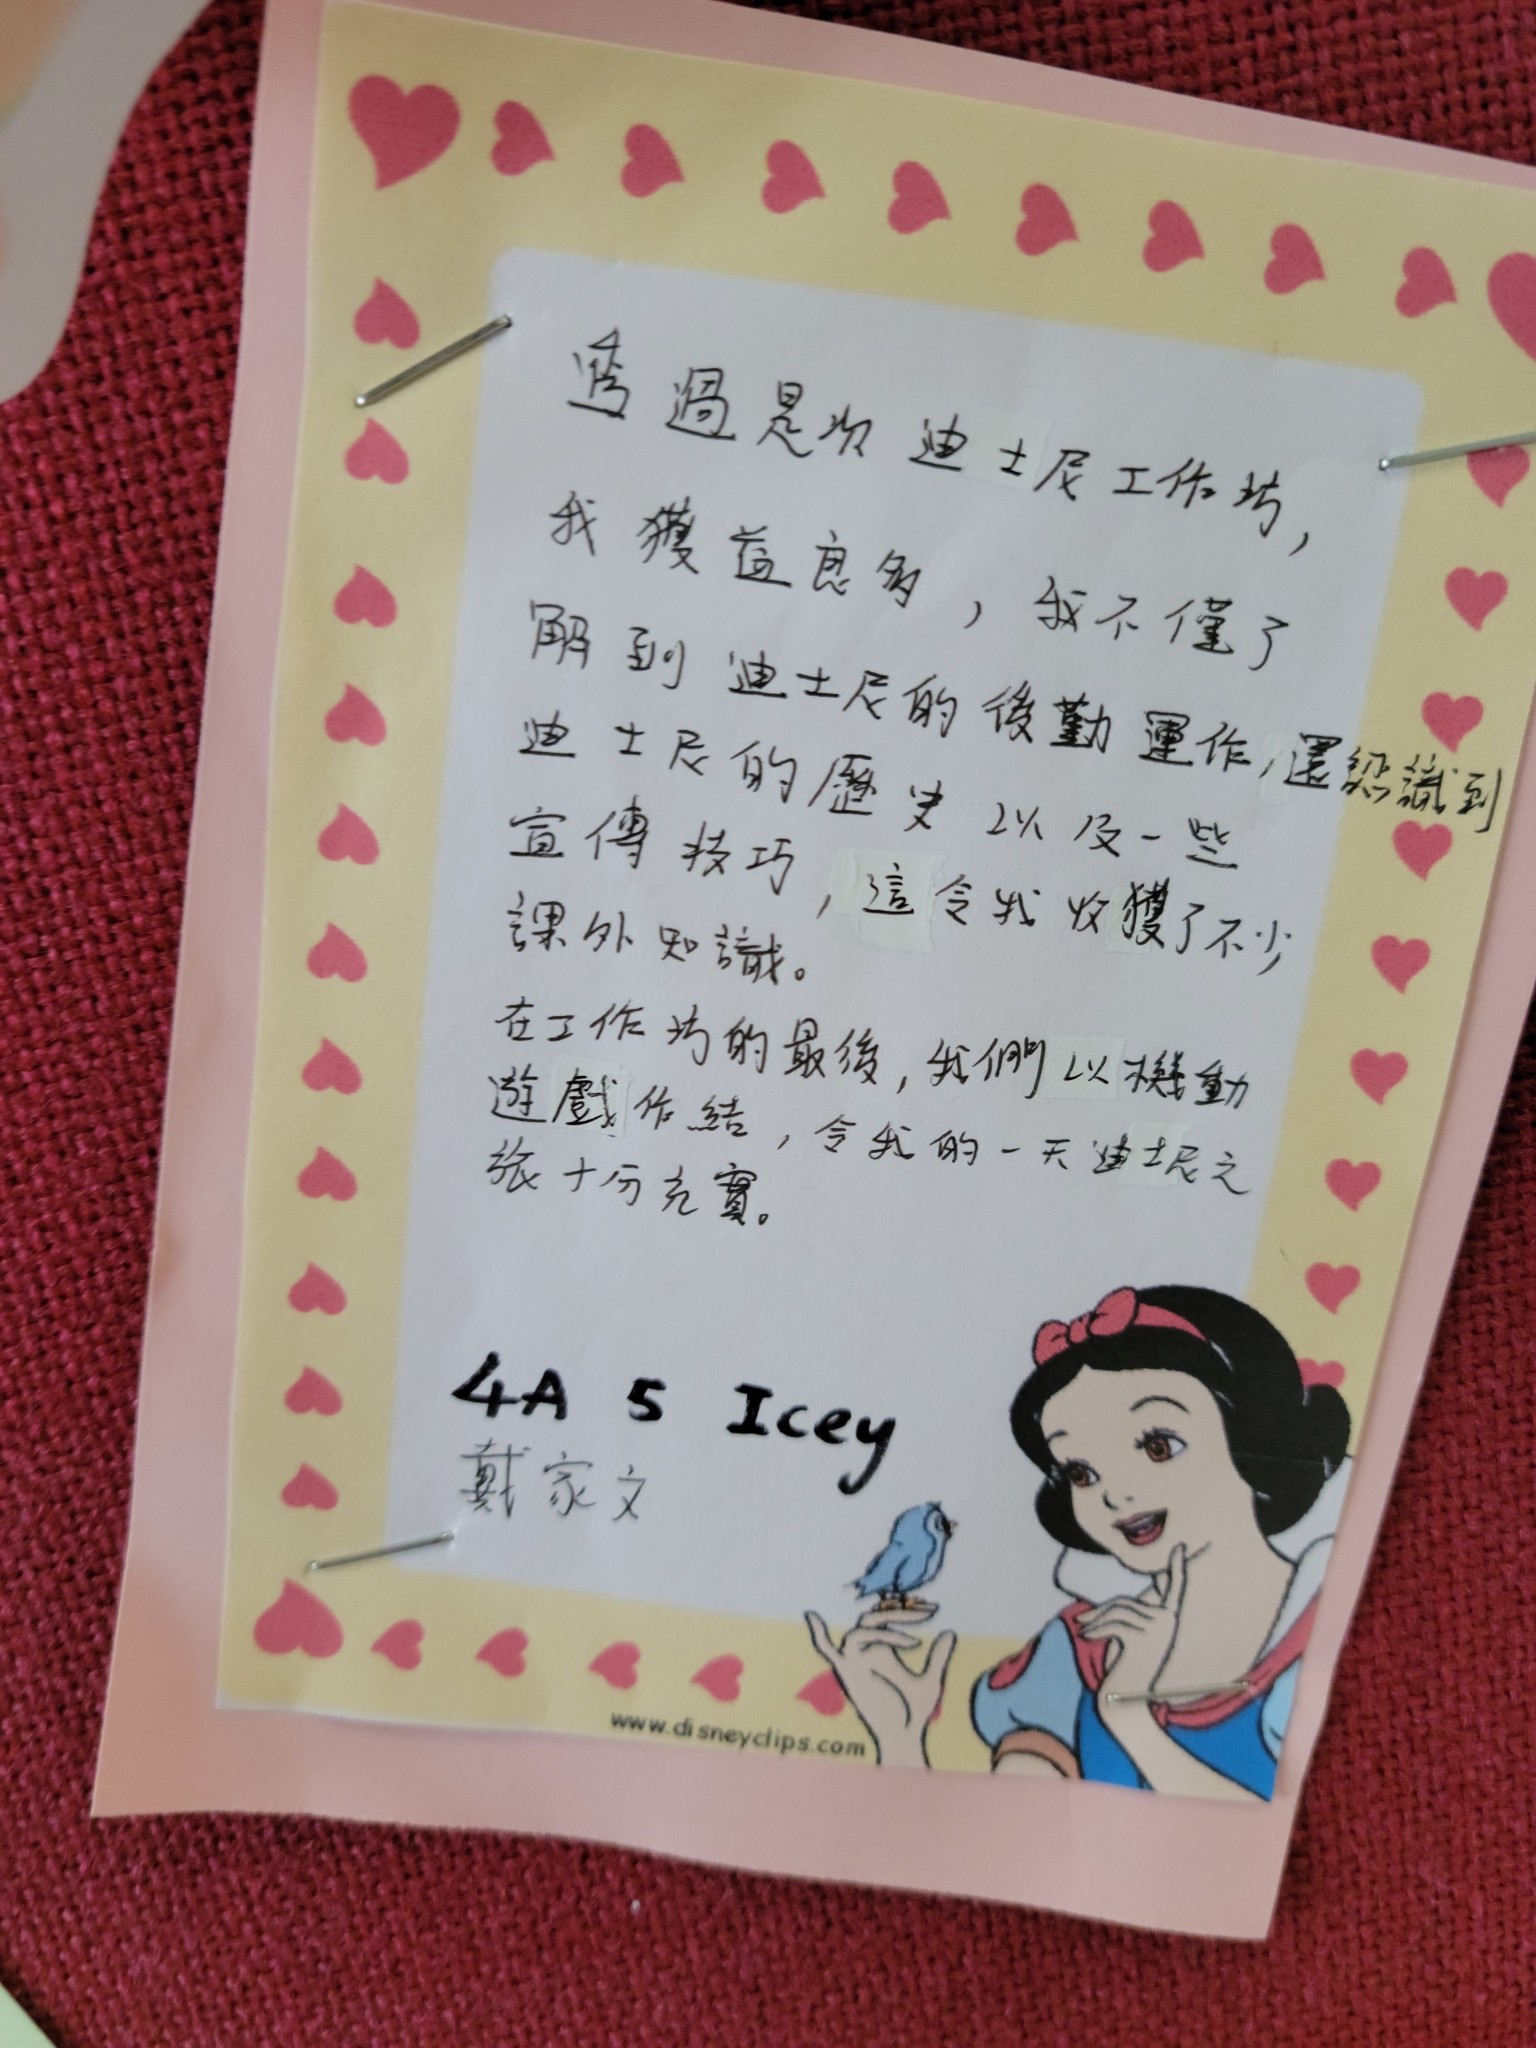 透過是次迪士尼工作坊，
我獲益良多，我不僅了
解到迪士尼的後勤運作，還認識到
迪士尼的歷史以及一些
宣傳技巧，這令我收獲了不少
課外知識。
在工作坊的最後，我們以機動
遊戲作結，令我的一天迪士尼之
旅十分充實。
4A 5 Icey
戴家文
www.disneyclips.com